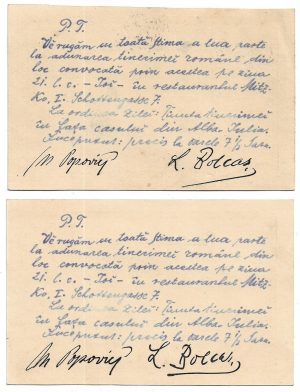 P. T.
Vĕ rugăm cu toată stima a lua parte
la adunarea tinerimei române din
loc convocată prin acestea pe ziua
21. l. c. - Joi - în restaurantul
Ko, I. Schottengasse 7.
La ordinea zilei: Ţinuta tinerimei
în faţa casului din Alba Iulia.
Începutul: precis la oarele 7 ½ sara.
M Popovici L. Bolcaş
P. T.
Vĕ rugăm cu toată stima a lua parte
la adunarea tinerimei române din
loc convocată prin acestea pe ziua
21. l. c. - Joi - în restaurantul
Ko, I. Schottengasse 7.
La ordinea zilei: Ţinuta tinerimei
în faţa casului din Alba Iulia.
Începutul: precis la oarele 7 ½ sara.
M Popovici L. Bolcaş